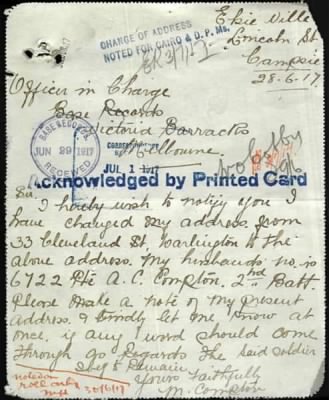 Elsie Ville
Lincoln St
Campsie
28.6.17
CHANGE OF ADDRESS
NOTED FOR CAIRO & O.P. Ms.
Officer in Charge
Base Records
Victoria Barracks
Melbourne.
BASE RECORDS
JUN 29 1917
RECEIVED
JUL 1 1917
Acknowledged by Printed Card
Sir
I hereby wish to notify you I
have changed my address from
33 Cleveland St, Darlington to the
above address. My husbands no. is
6722 Pte A. C. Compton. 2nd Batt.
Please make a note of my present
address, & kindly let me know at
once, if any word should come
through as regards the said soldier
I remain
Yours Faithfully
M. Compton
noted on
roll card
30/6/17